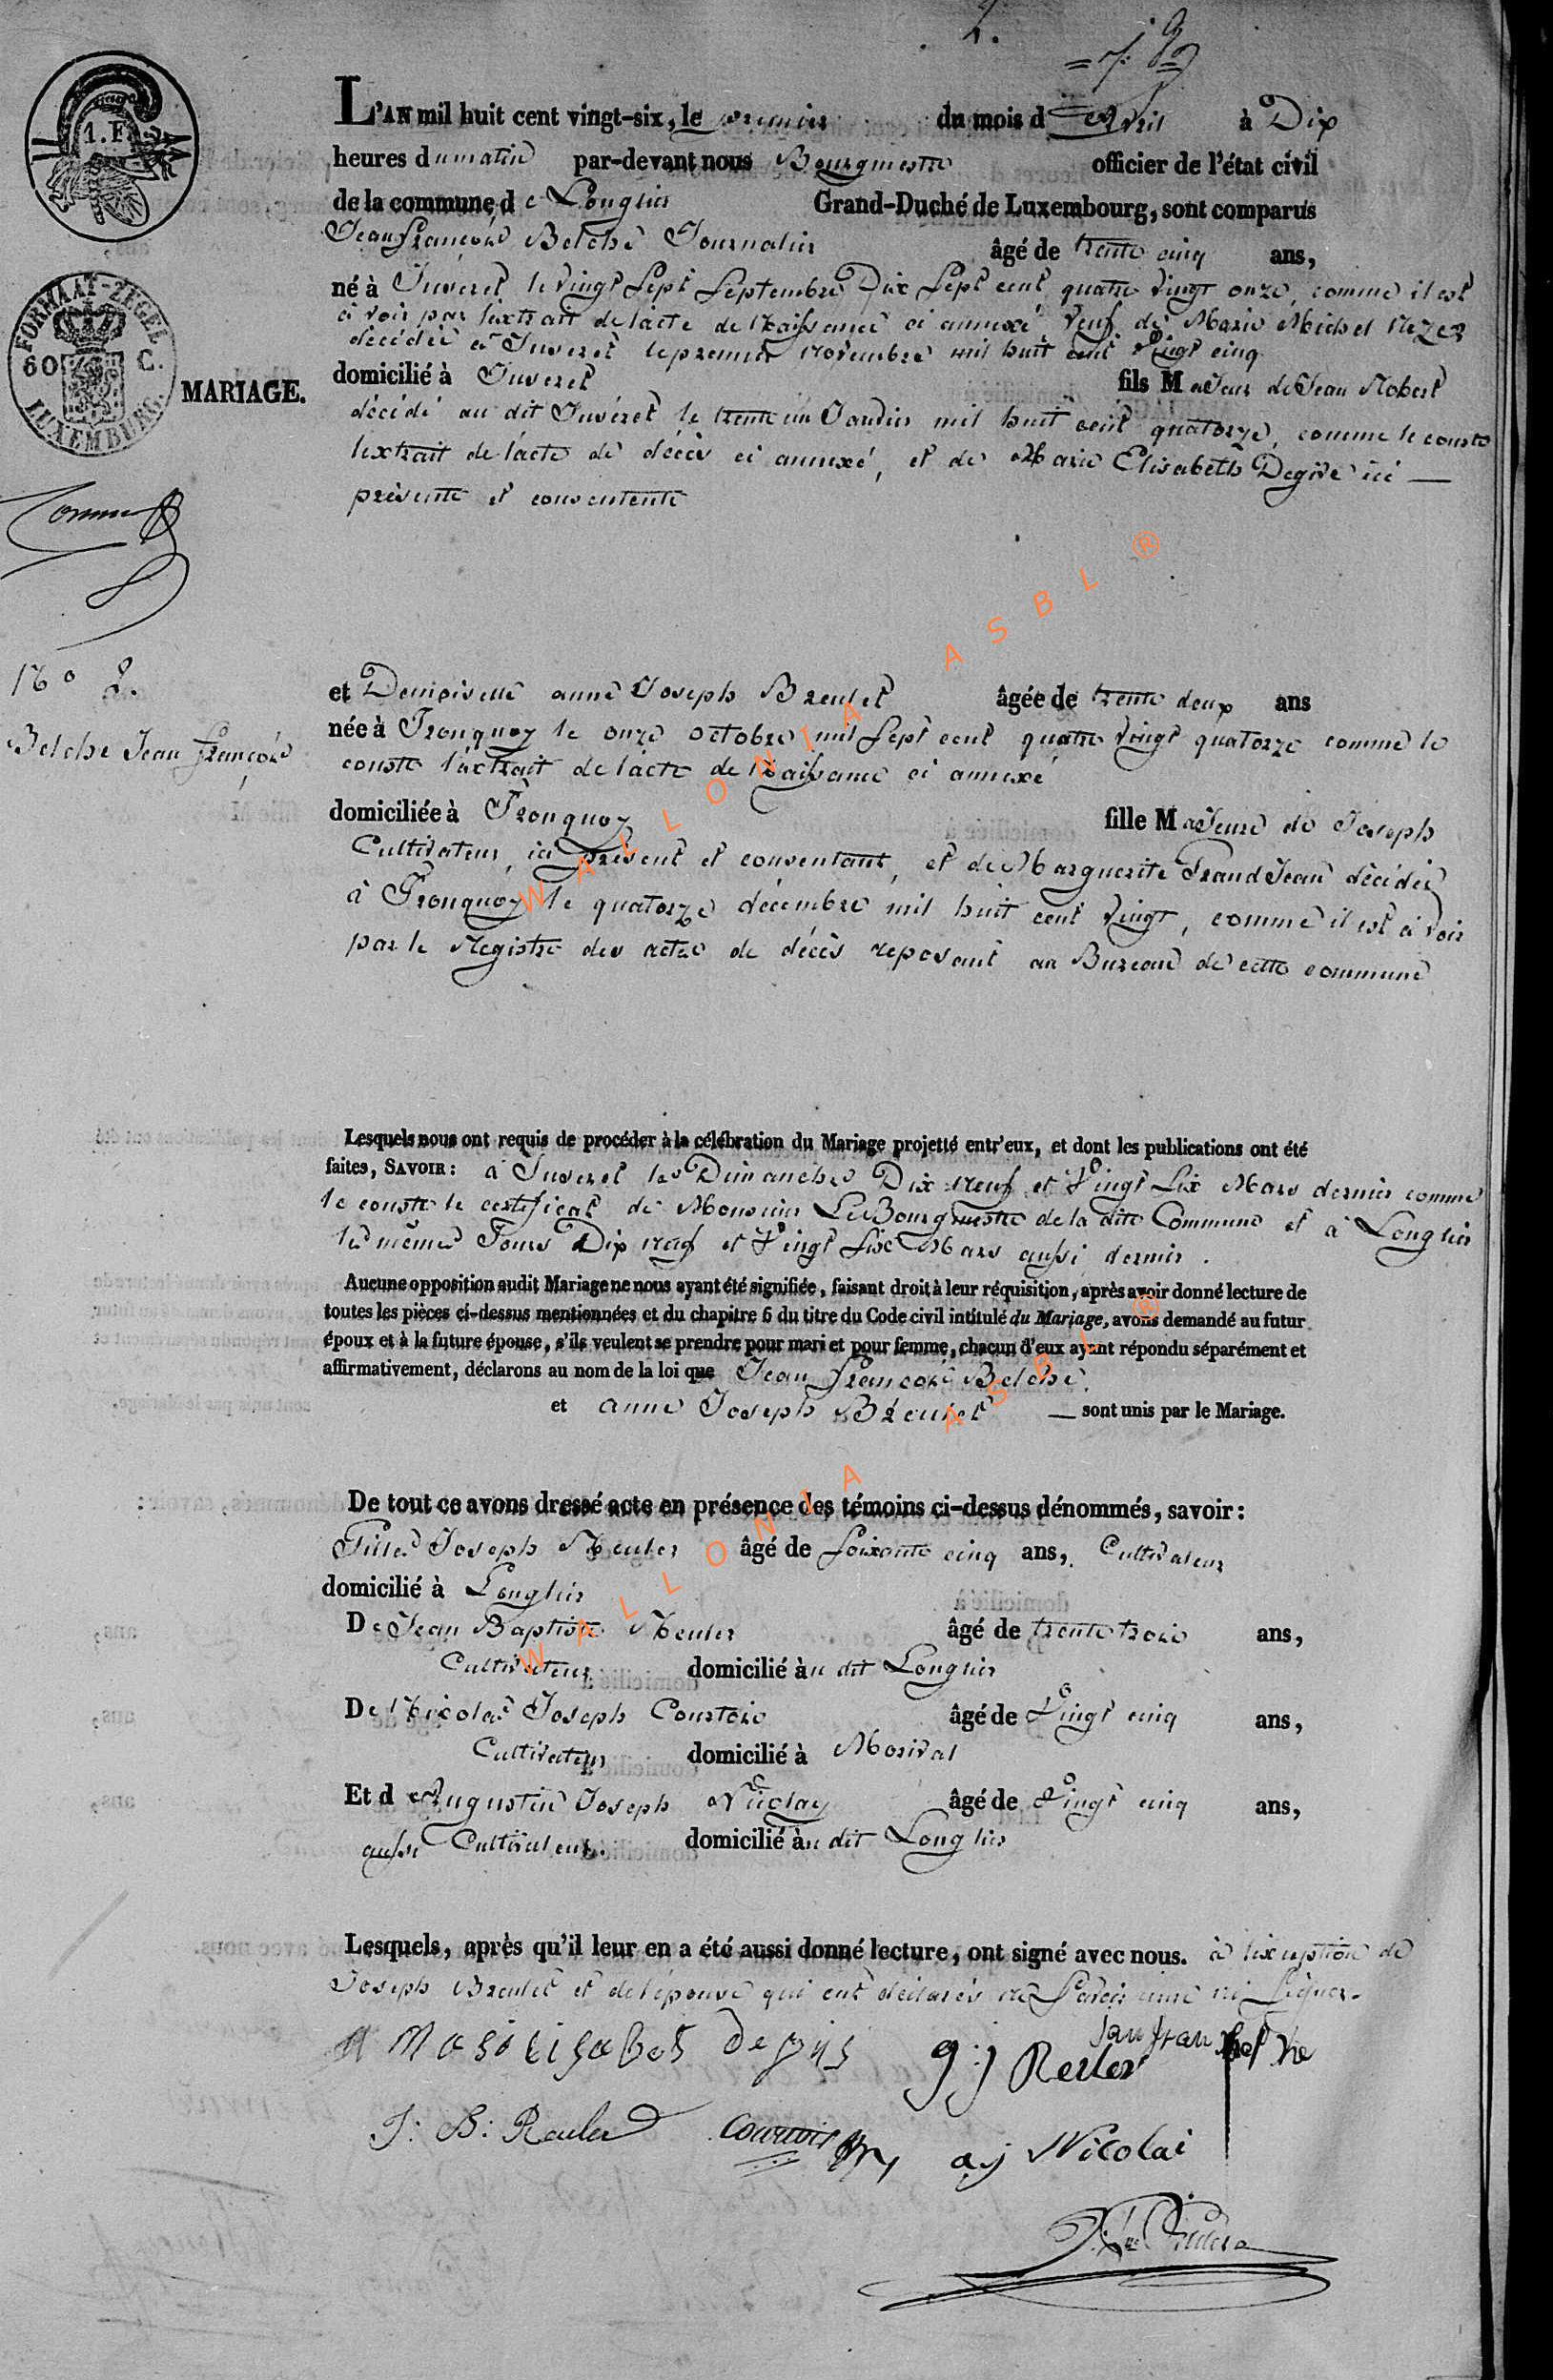 2.
1. F.
FORMAAT-ZEGEL
60 C.
LUXEMBURG.
MARIAGE.
N° 2.
Belche Jean françois
L'AN mil huit cent vingt-six, le premier du mois d'Avril à Dix
heures du matin par-devant nous Bourgmestre officier de l'état civil
de la commune de Longlier Grand-Duché de Luxembourg, sont comparus
Jean françois Belche Journalier âgé de trente cinq ans,
né à Juseret le vingt Sept Septembre Dix Sept cent quatre vingt onze, comme il est
à voir par l'extrait de l'acte de Naissance ci annexé, Veuf de Marie Michel
décédée à Juseret le premier novembre mil huit cent vingt cinq
domicilié à Juseret fils Majeur de Jean Robert
décédé au dit Juseret le trente un Janvier mil huit cent quatorze, comme le conste
l'extrait de l'acte de décès ci annexé, et de Marie Elisabeth Degive ici —
présente et consentente
et Demoiselle anne Joseph Breulet âgée de trente deux ans
née à Tronquoy le onze octobre mil Sept cent quatre vingt quatorze comme le
conste l'extrait de l'acte de Naissance ci annexé
domiciliée à Tronquoy fille Majeure de Joseph
Cultivateur, ici présent et consentant, et de Marguerite Grand Jean décédée
à Tronquoy le quatorze décembre mil huit cent vingt, comme il est à voir
par le Registre des actes de décès reposant au Bureau de cette commune
Lesquels nous ont requis de procéder à la célébration du Mariage projetté entr'eux, et dont les publications ont été
faites, SAVOIR : à Juseret les Dimanches Dix neuf et Vingt Six Mars dernier comme
le conste le certificat de Monsieur Le Bourgmestre de la dite Commune et à Longlier
les mêmes Jours Dix neuf et Vingt Six Mars aussi dernier.
Aucune opposition audit Mariage ne nous ayant été signifiée, faisant droit à leur réquisition, après avoir donné lecture de
toutes les pièces ci-dessus mentionnées et du chapitre 6 du titre du Code civil intitulé du Mariage, avons demandé au futur
époux et à la future épouse, s'ils veulent se prendre pour mari et pour femme, chacun d'eux ayant répondu séparément et
affirmativement, déclarons au nom de la loi que Jean françois Belche.
et anne Joseph Breulet — sont unis par le Mariage.
De tout ce avons dressé acte en présence des témoins ci-dessus dénommés, savoir :
Gilles Joseph Reuler âgé de Soixante cinq ans, Cultivateur
domicilié à Longlier
De Jean Baptiste Reuler âgé de trente trois ans,
Cultivateur domicilié au dit Longlier
De Nicolas Joseph Courtois âgé de Vingt cinq ans,
Cultivateur domicilié à Morival
Et de Augustin Joseph Nicolay âgé de Vingt cinq ans,
aussi Cultivateur. domicilié au dit Longlier
Lesquels, après qu'il leur en a été aussi donné lecture, ont signé avec nous. à l'exception de
Joseph Breulet et de l'épouse qui ont déclarés ne Savoir écrire ni Signer.
g: j Reuler
J: B: Reuler Courtois a j Nicolai
WALLONIA ASBL ®
WALLONIA ASBL ®